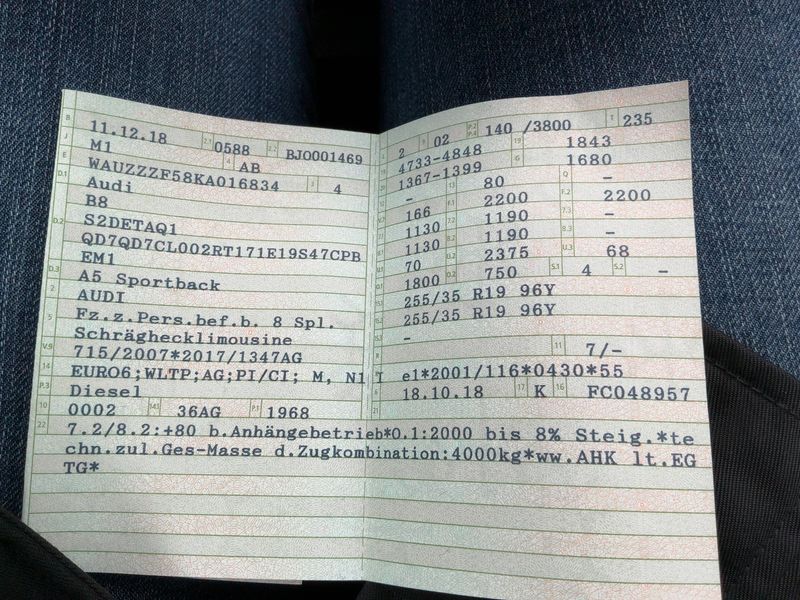 B 11.12.18 2.1 0588 2.2 BJO001469
J M1 4 AB
E WAUZZZF58KA016834 3 4
D.1 Audi
B8
D.2 S2DETAQ1
QD7QD7CL002RT171E19S47CPB
EM1
D.3 A5 Sportback
2 AUDI
5 Fz.z.Pers.bef.b. 8 Spl.
Schräghecklimousine
V.9 715/2007*2017/1347AG
14 EURO6;WLTP;AG;PI/CI; M, N1 I
P.3 Diesel
10 0002 14.1 36AG P.1 1968
2 9 02 P.2 P.4 140 /3800 T 235
4733-4848 19 1843
1367-1399 G 1680
- 13 80 Q -
166 F.1 2200 F.2 2200
1130 7.2 1190 7.3 -
1130 8.2 1190 8.3 -
70 U.2 2375 U.3 68
1800 O.2 750 S.1 4 S.2 -
255/35 R19 96Y
255/35 R19 96Y
-
11 7/-
e1*2001/116*0430*55
6 18.10.18 17 K 16 FC048957
21
22 7.2/8.2:+80 b.Anhängebetrieb*0.1:2000 bis 8% Steig.*te
chn.zul.Ges-Masse d.Zugkombination:4000kg*ww.AHK lt.EG
TG*